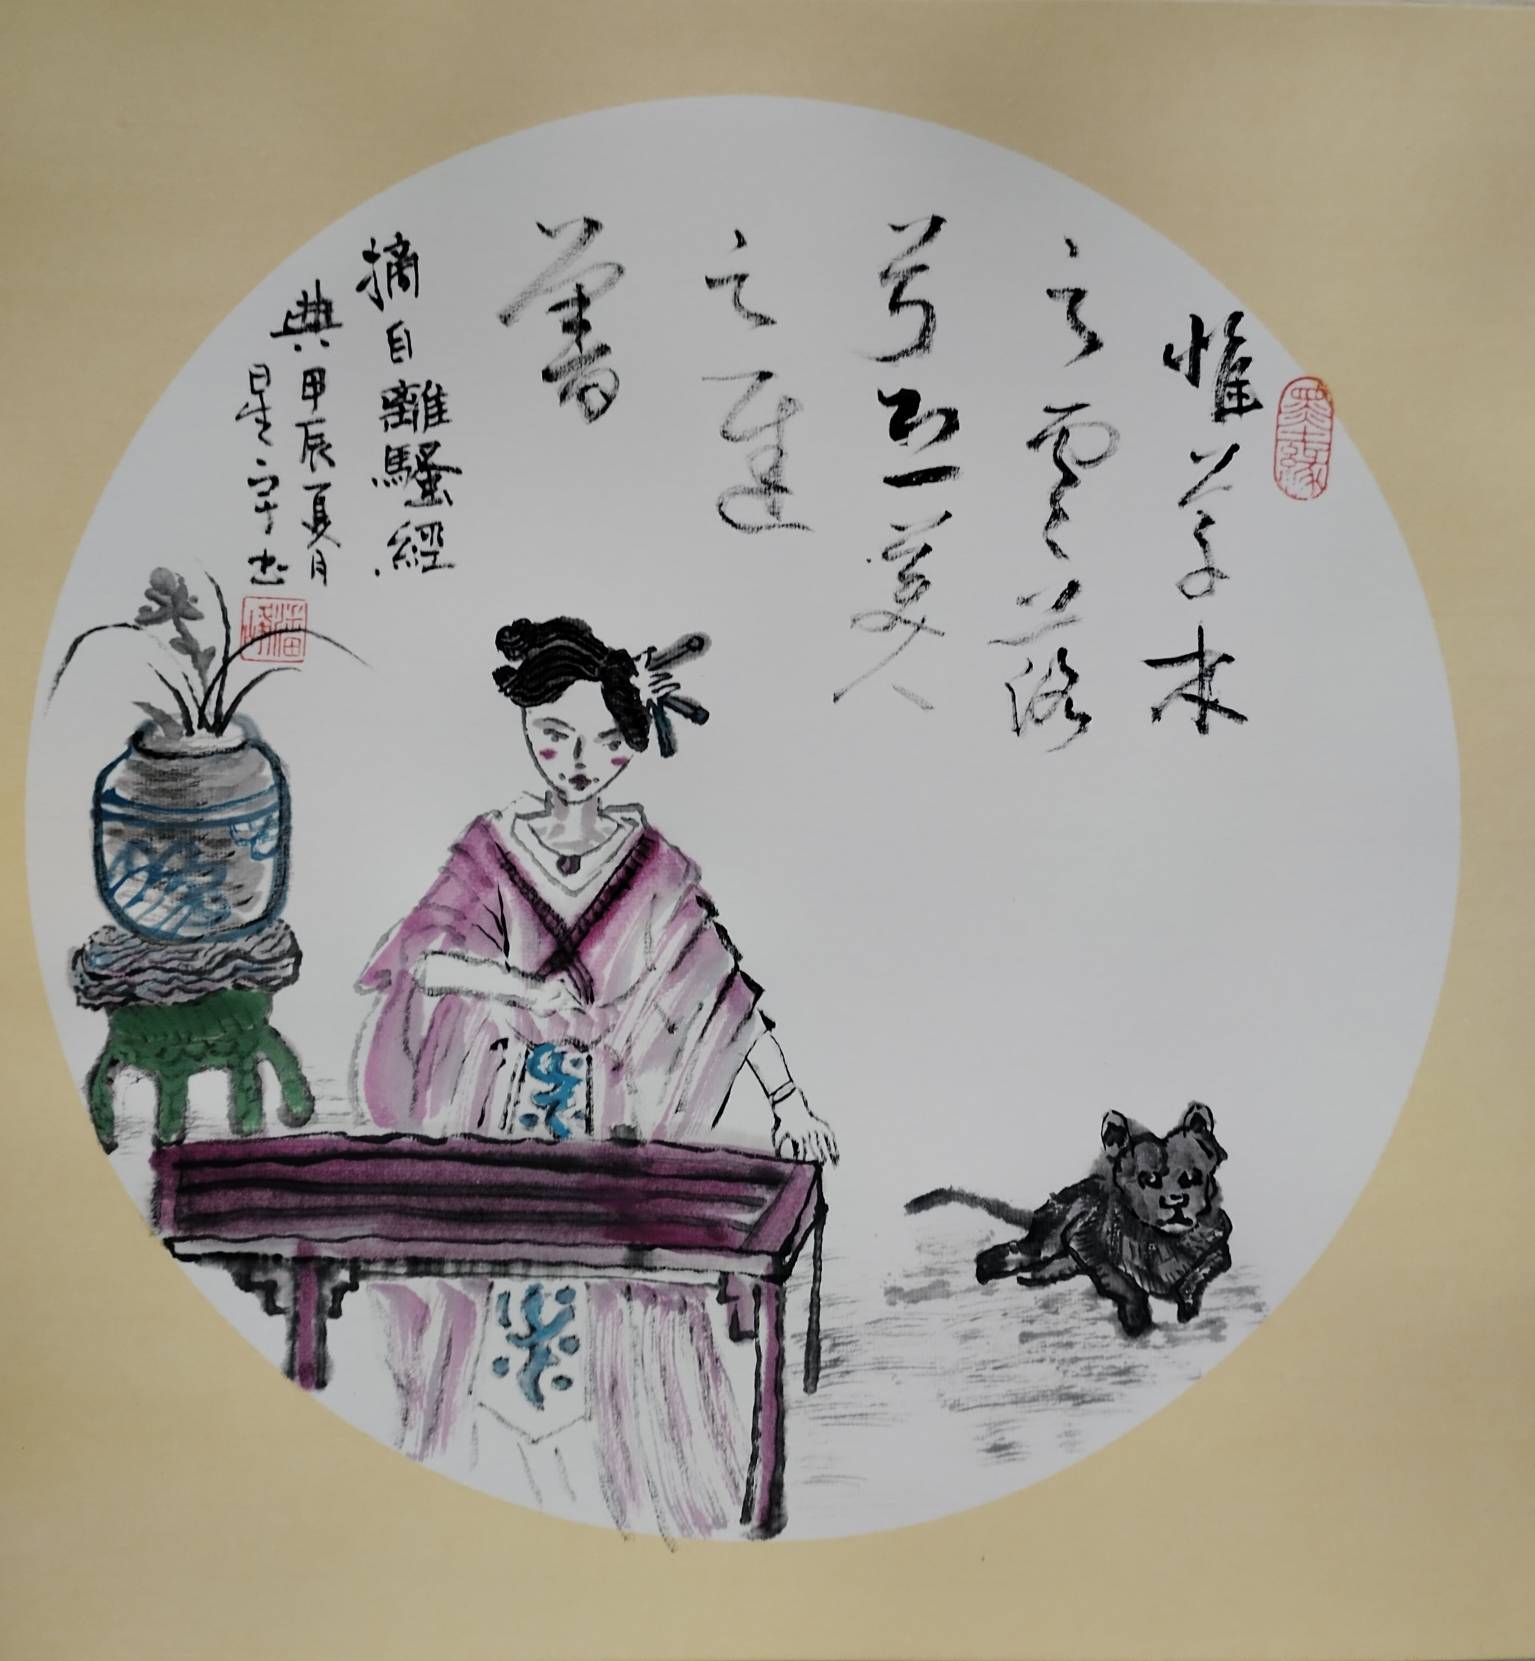 惟草木
之零落
兮恐美人
之遲
暮
摘自離騷經
典甲辰夏月
星宇书